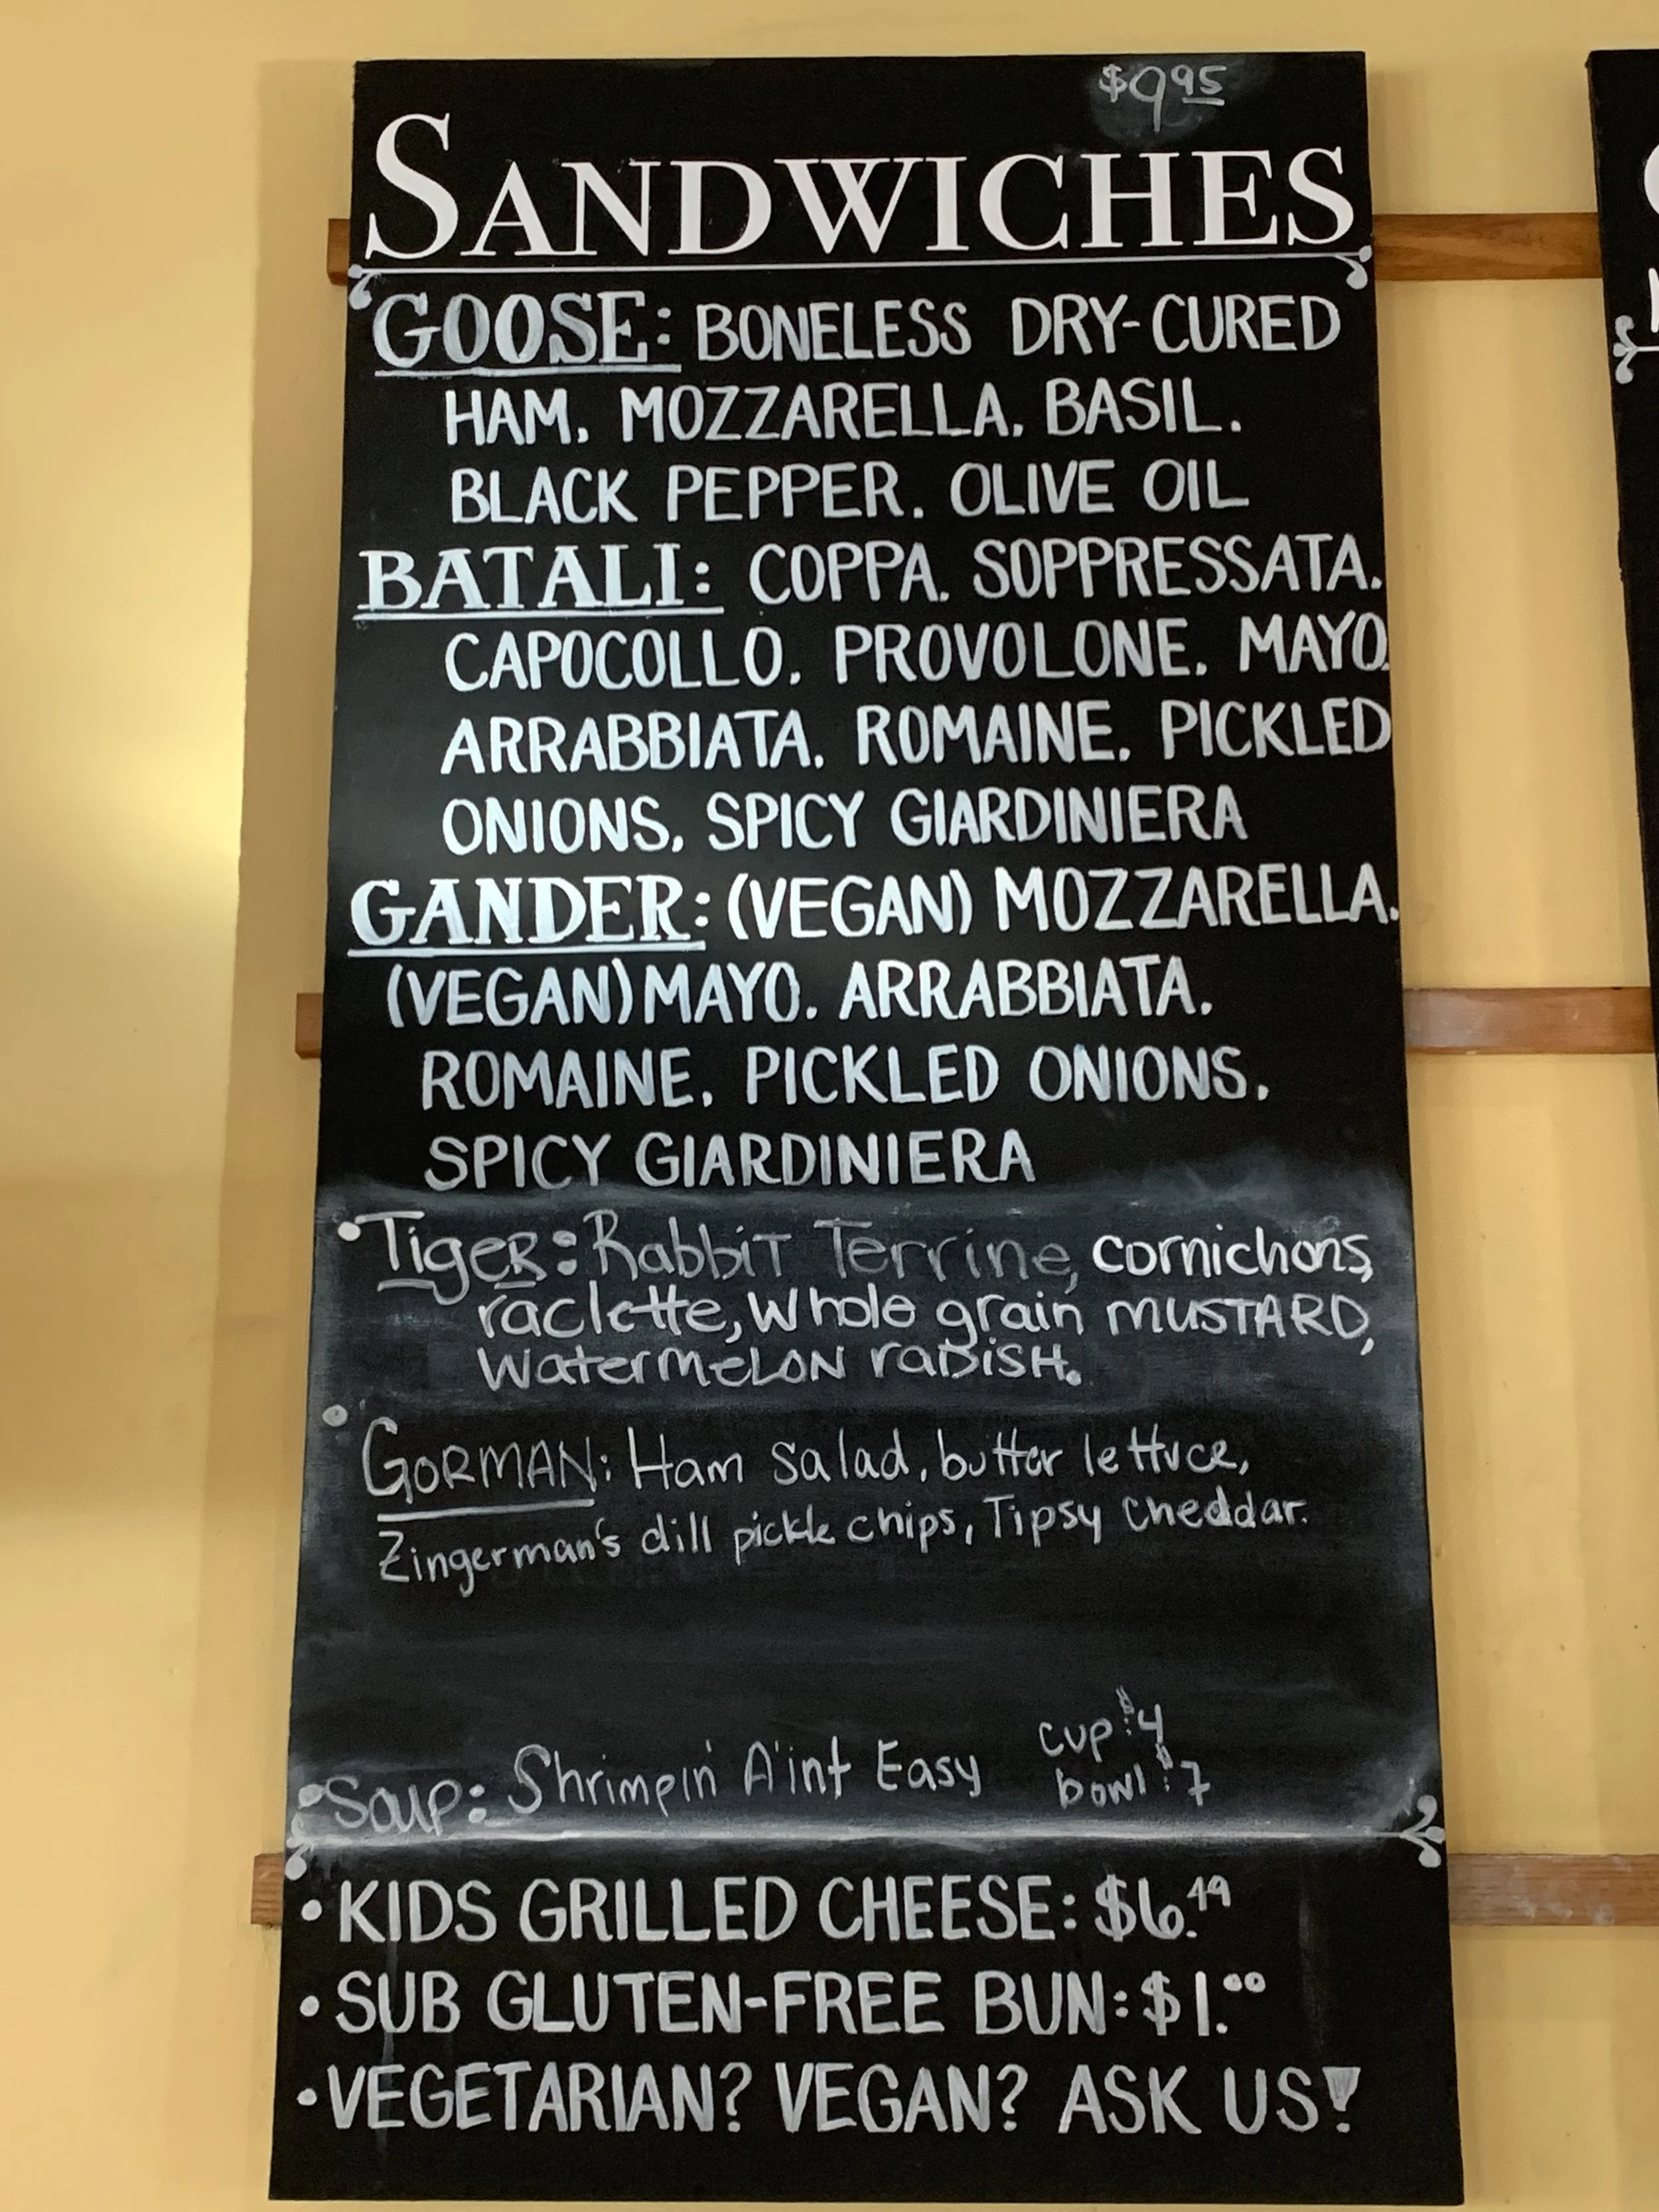 $9.95
SANDWICHES
GOOSE: BONELESS DRY-CURED
HAM. MOZZARELLA. BASIL.
BLACK PEPPER. OLIVE OIL
BATALI: COPPA. SOPPRESSATA.
CAPOCOLLO. PROVOLONE. MAYO.
ARRABBIATA. ROMAINE. PICKLED
ONIONS. SPICY GIARDINIERA
GANDER: (VEGAN) MOZZARELLA.
(VEGAN) MAYO. ARRABBIATA.
ROMAINE. PICKLED ONIONS.
SPICY GIARDINIERA
• TigeR: Rabbit Terrine, cornichons,
raclette, Whole grain MUSTARD,
WatermeLON raDiSH.
• GORMAN: Ham salad, butter lettuce,
Zingerman's dill pickle chips, Tipsy Cheddar.
• Soup: Shrimpin' A'int Easy cup: $4
bowl: $7
• KIDS GRILLED CHEESE: $6.49
• SUB GLUTEN-FREE BUN: $1.00
• VEGETARIAN? VEGAN? ASK US!